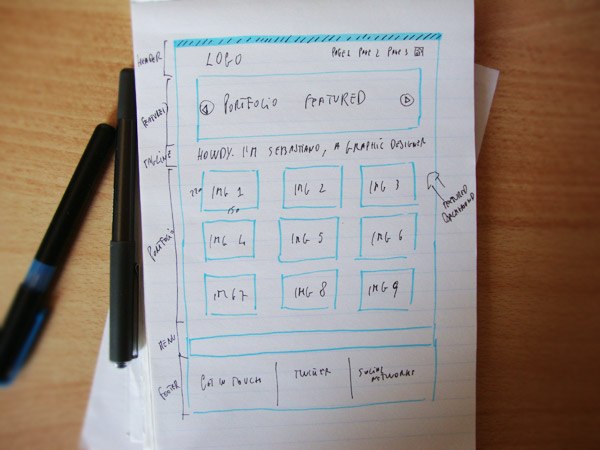 HEADER
LOGO
PAGE 1 PAGE 2 PAGE 3
FEATURED
PORTFOLIO FEATURED
TAGLINE
HOWDY. I'M SEBASTIANO, A GRAPHIC DESIGNER
PORTFOLIO
220
IMG 1 IMG 2 IMG 3
150
FEATURED
IMG 4 IMG 5 IMG 6
IMG 7 IMG 8 IMG 9
MENU
FOOTER
GET IN TOUCH
TWITTER
SOCIAL
NETWORKS